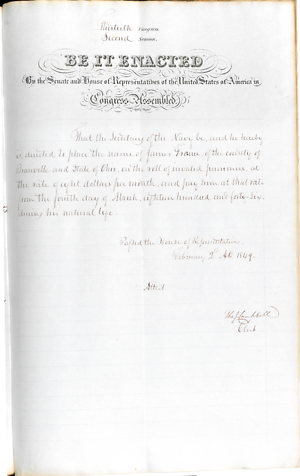 Thirtieth Congress
Second Session,
BE IT ENACTED
By the Senate and House of Representatives of the United States of America in
Congress Assembled,
That the Secretary of the Navy be, and he hereby
is directed to place the name of James of the county of
and State of Ohio, on the roll of invalid pensioners, at
the rate of eight dollars per month, and pay him at that rate
from the fourth day of March, eighteen hundred and forty-six,
during his natural life.
Passed the House of Representatives
February 2d AD. 1849.
Attest
Campbell
Clerk